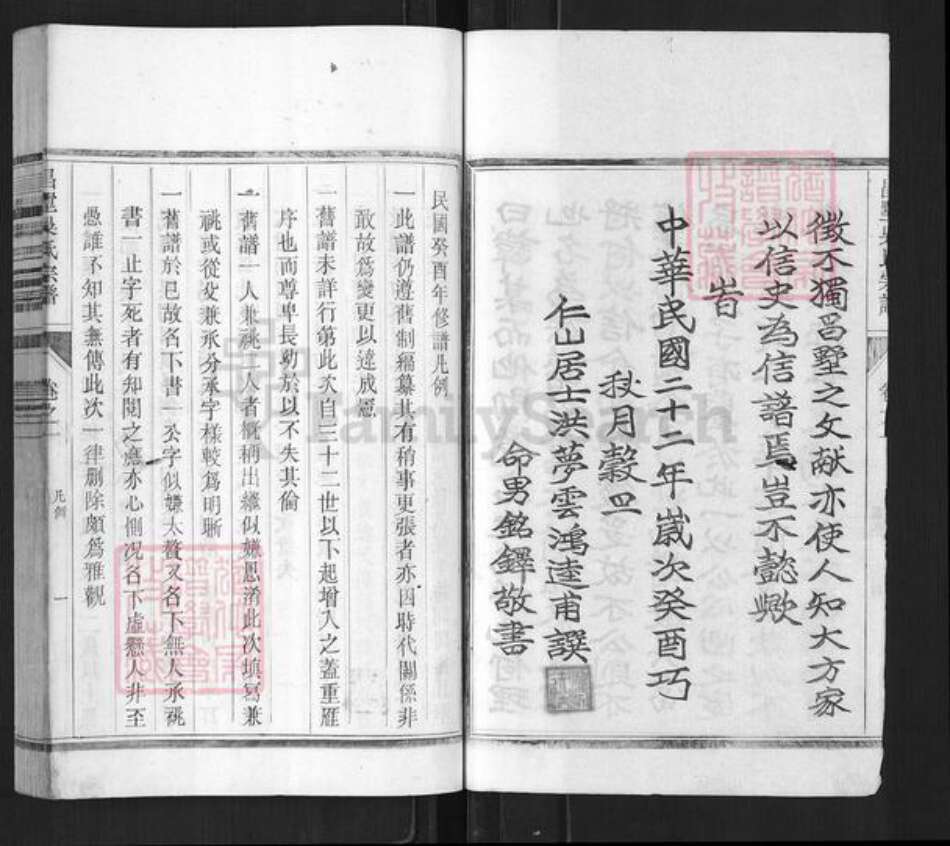 徵不獨昌墅之文献亦使人知大方家
以信史為信譜焉豈不懿歟
旹
中華民國二十二年歲次癸酉巧
秋月穀旦
仁山居士洪夢雲鴻逵甫譔
命男銘鐸敬書
民國癸酉年修譜凡例
一此譜仍遵舊制編纂其有稍事更張者亦因時代關係非
敢故爲變更以違成憲
一舊譜未詳行第此次自三十二世以下起增入之蓋重雁
序也而尊卑長幼於以不失其倫
一舊譜一人兼祧二人者概稱出繼似嫌思淆此次填寫兼
祧或從父兼承分承字樣較爲明晰
一舊譜於已故名下書一公字似嫌太贅又名下無人承祧
書一止字死者有知閱之應亦心惻况名下虛懸人非至
愚誰不知其無傳此次一律刪除頗爲雅觀
凡例
一
FamilySearch